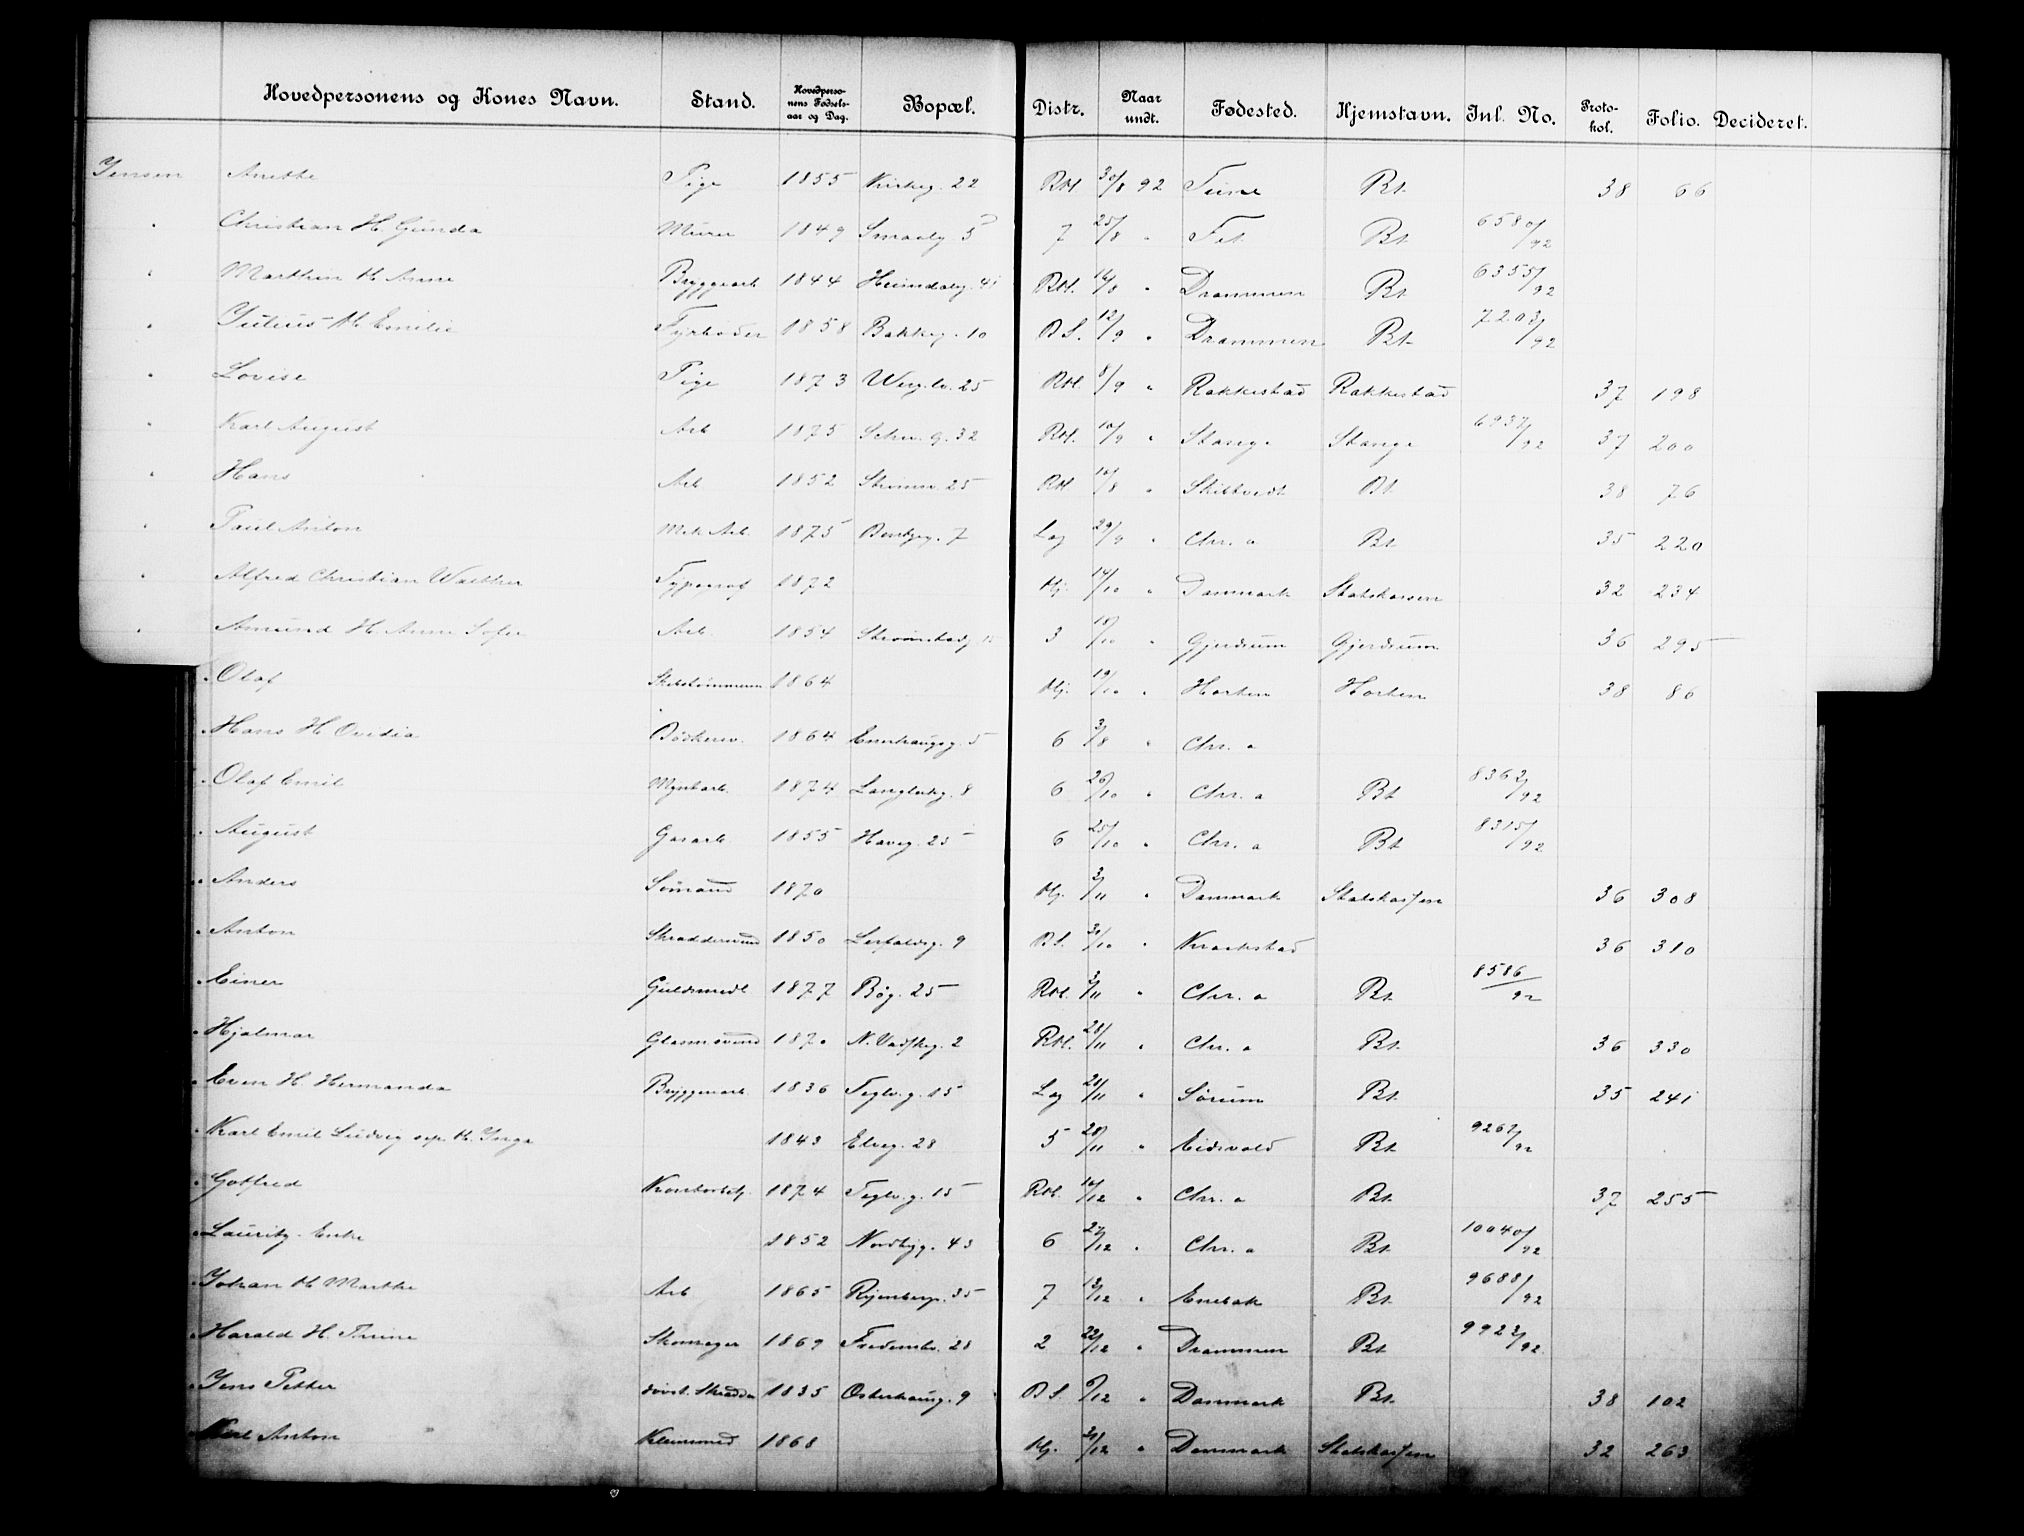 Hovedpersonens og Kones Navn. Stand. Hovedpersonens Fødselsaar og Dag. Bopæl. Distr. Naar undt. Fødested. Hjemstavn. Inl. No. Protokol. Folio. Decideret.
Jensen Anethe Pige 1855 Kirkeg. 22 RM 30/8 92 Tune Bt. 38 66
" Christian H. Gunda Murer 1849 Smaalg 5 7 25/8 " Fet Bt. 6580/92
" Marthin H. Anne Bryggearb 1844 Heimdalsg. 41 RM. 16/8 " Drammen Bt 6355/92
" Julius H. Emilie Fyrbøder 1858 Bakkeg. 10 BS. 12/9 " Drammen Bt. 7203/92
" Lovise Pige 1873 Werg.v. 25 RM. 8/9 " Rakkestad Rakkestad 37 198
" Karl August Arb 1875 Schw. g. 32 RM. 10/9 " Stange Stange 6937/92 37 200
" Hans Arb 1852 Strømv. 25 RM 16/8 " Skibtvedt Bt. 38 76
" Paul Anton Mek Arb. 1875 7 Lag 29/9 " Chr. a Bt 35 220
" Alfred Christian Walther Typograf 1872 Hj. 14/10 " Danmark Statskassen 32 234
" Amund H. Anne Sofie Arb. 1854 Strømstadg 15 3 18/10 " Gjerdrum Gjerdrum 36 295
" Olaf Skibstømmerm 1864 Hj. 19/10 " Horten Horten 38 86
" Hans H Ovidia Bødkersv. 1864 Enerhaugsg. 5 6 3/8 " Chr. a
" Olaf Emil Myntarb. 1874 Langleikg. 8 6 26/10 " Chr. a Bt 8362/92
" August Gasarb. 1855 Haveg. 25 6 25/10 " Chr. a Bt 8315/92
" Anders Sømand 1870 Hj. 2/11 " Danmark Statskassen 36 308
" Anton Skræddersvend 1850 Lerfaldsg. 9 BS. 31/10 " Kraakstad 36 310
" Einer Guldsmedl 1877 Bøg. 25 RM. 3/11 " Chr. a Bt 8586/92
" Hjalmar Glasmsvend 1870 N. Vadskg. 2 RM. 28/11 " Chr. a Bt. 36 330
" Even H. Hermanda Bryggearb. 1836 Teglv. g. 15 Lag 21/11 " Sørum Bt. 35 241
" Karl Emil Ludvig sep. H. Inga 1843 Elveg. 28 5 28/11 " Eidsvold Bt. 9267/92
" Gotfred Kontorbetj. 1874 Teglv. g. 15 RM. 16/12 " Chr. a Bt. 37 255
" Lauritz. Enke 1852 Nordbyg. 43 6 27/12 " Chr. a Bt. 10040/92
" Johan H. Marthe Arb 1865 Ryenberg. 35 7 12/12 " Enebak Bt. 9688/92
" Harald H. Thrine Skomager 1869 Fredensb. 28 2 22/12 " Drammen Bt. 9922/92
" Jens Petter døvst. Skrædder 1835 Østerhaug. 9 BS. 9/12 " Danmark Bt. 38 102
" Karl Anton Kleinsmed 1868 Hj. 31/12 " Danmark Statskassen 32 263